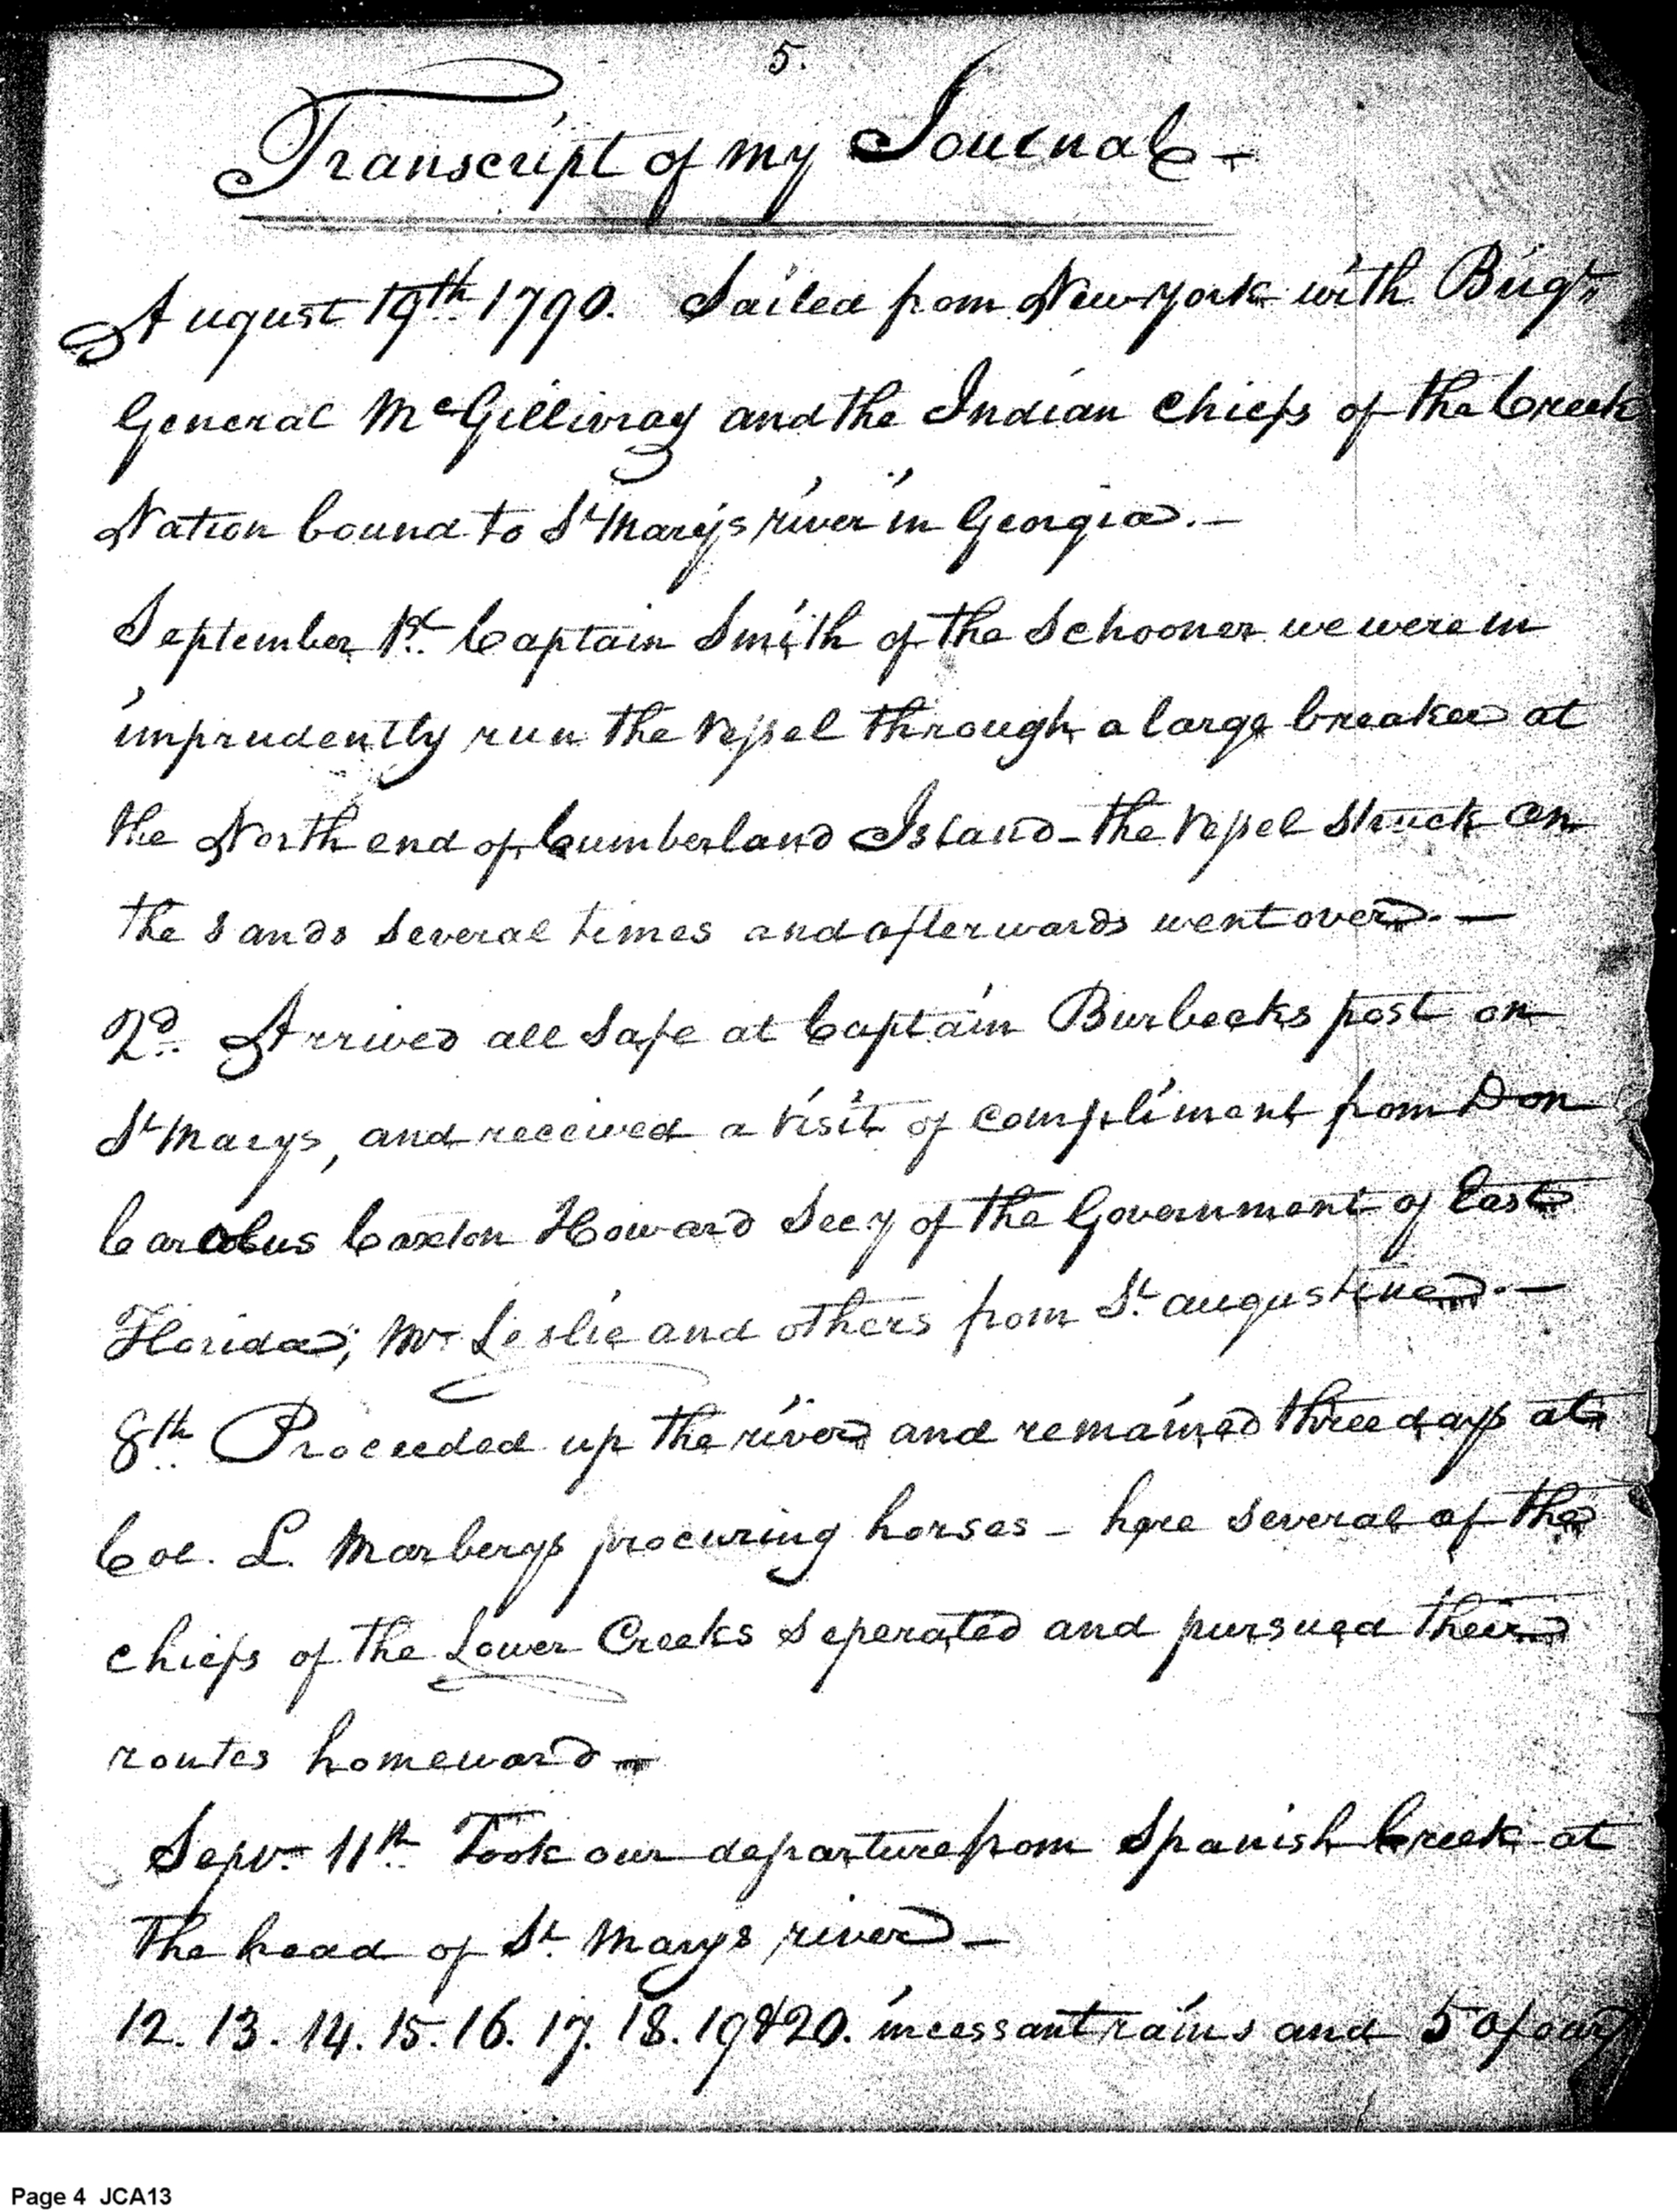 5.
Transcript of my Journal -
August 19th 1790. Sailed from New York with Brigr
General McGillivray and the Indian Chiefs of the Creek
Nation bound to St Marys river in Georgia. -
September 1st Captain Smith of the Schooner we were in
imprudently run the Vessel through a large breaker at
the North end of Cumberland Island - the Vessel Struck on
the sands several times and afterwards went over. -
2d. Arrived all safe at Captain Burbecks post on
St Marys, and received a visit of compliment from Don
Carolus Caxton Howard Secy of the Government of East
Florida; Mr Leslie and others from St. augustine. -
8th Proceeded up the river and remained three days at
Col. L. Marberys procuring horses - here several of the
chiefs of the Lower Creeks seperated and pursued their
routes homeward -
Sepr. 11th. Took our departure from Spanish Creek at
the head of St. Marys river -
12. 13. 14. 15. 16. 17. 18. 19 & 20. incessant rains and 5 of our
Page 4 JCA13